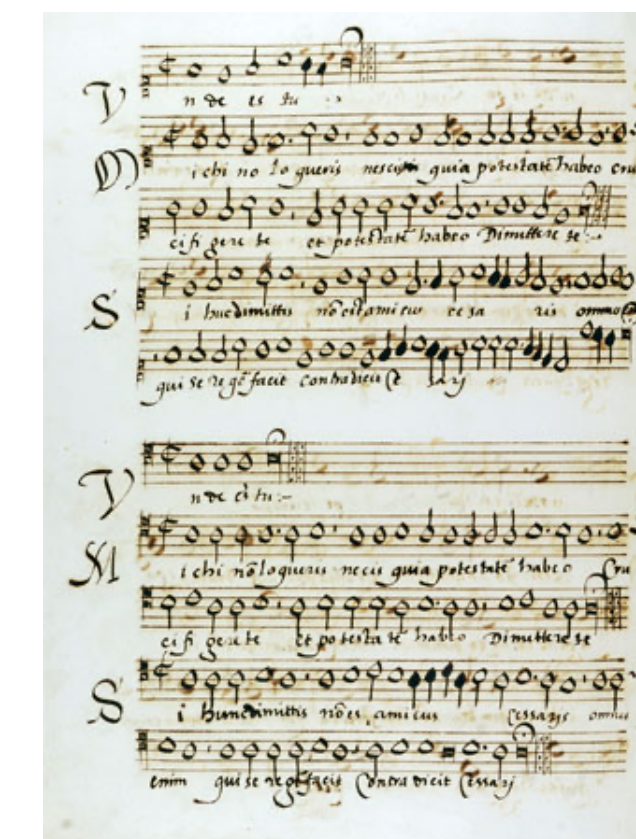 V nde es tu
M ichi no loqueris nescis quia potestatē habeo cru
cifi gere te et potestatē habeo Dimittere te
S i hucdimittis nō es amicus cesa ris omnis
qui se re gē facit contradicit Ce sarj
V nde es tu
M ichi nō loqueris necis quia potestatē habeo Cru
cifi gere te et po testa tē habeo Dimittere te
S i huncdimittis nō es amicus Cessaris omnis
enim qui se re gē facit Contra dicit Cessarj